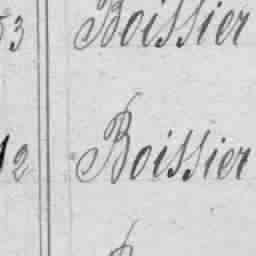 53 Boissier
12 Boissier